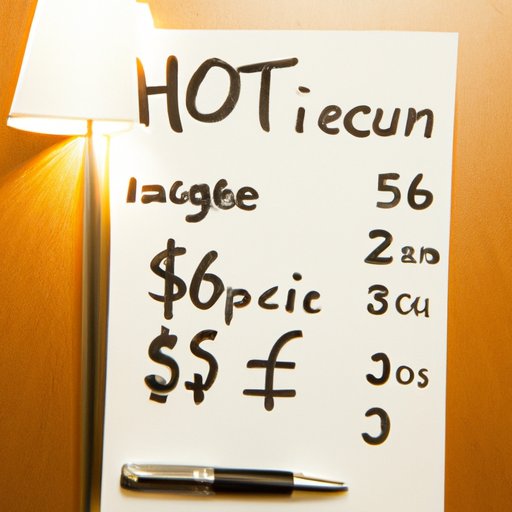 HOTiecun
lacgge 56
2 
$6pcic 3cu
$$ 
Jos